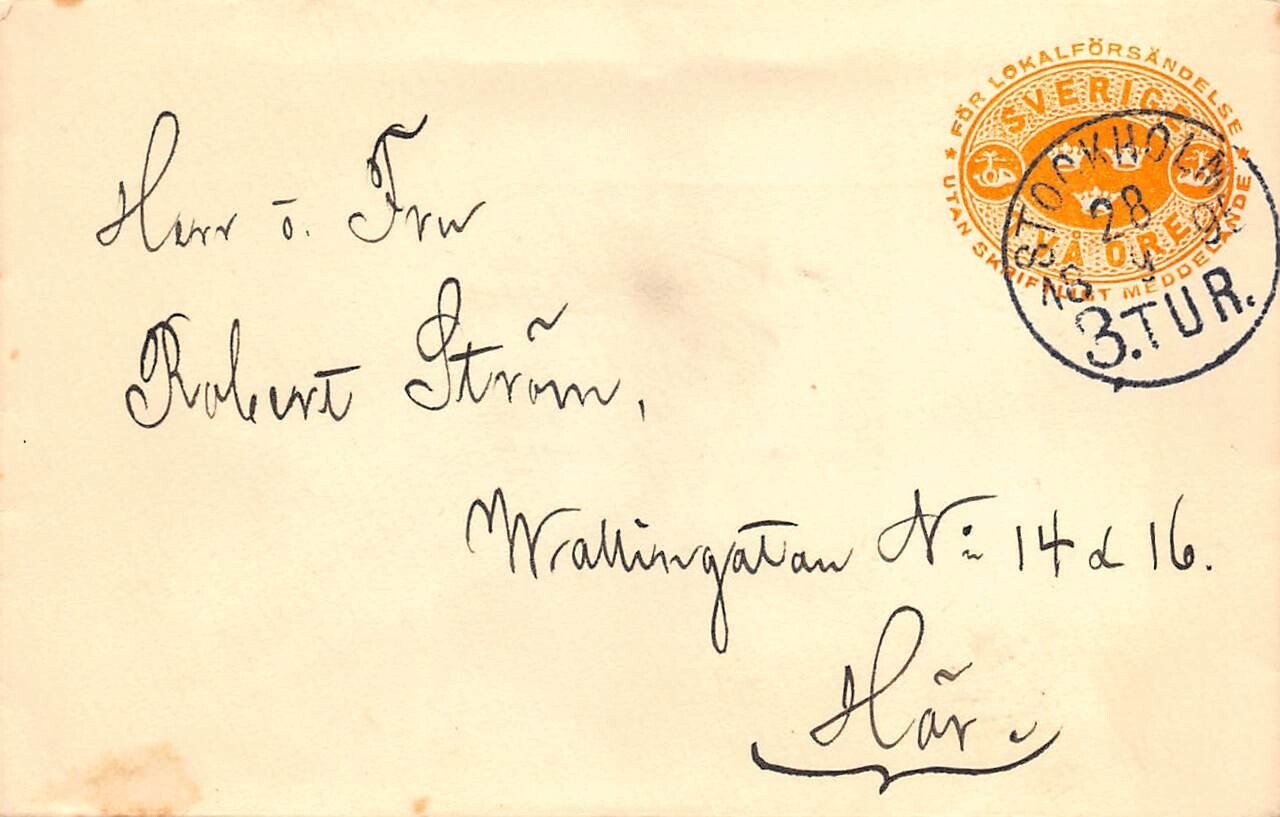 FÖR LOKALFÖRSÄNDELSE
SVERIGE
TVÅ ÖRE
UTAN SKRIFTLIGT MEDDELANDE
STOCKHOLM
28
4
3.TUR.
Herr o. Fru
Robert Ström,
Wallingatan No 14 & 16.
Här.